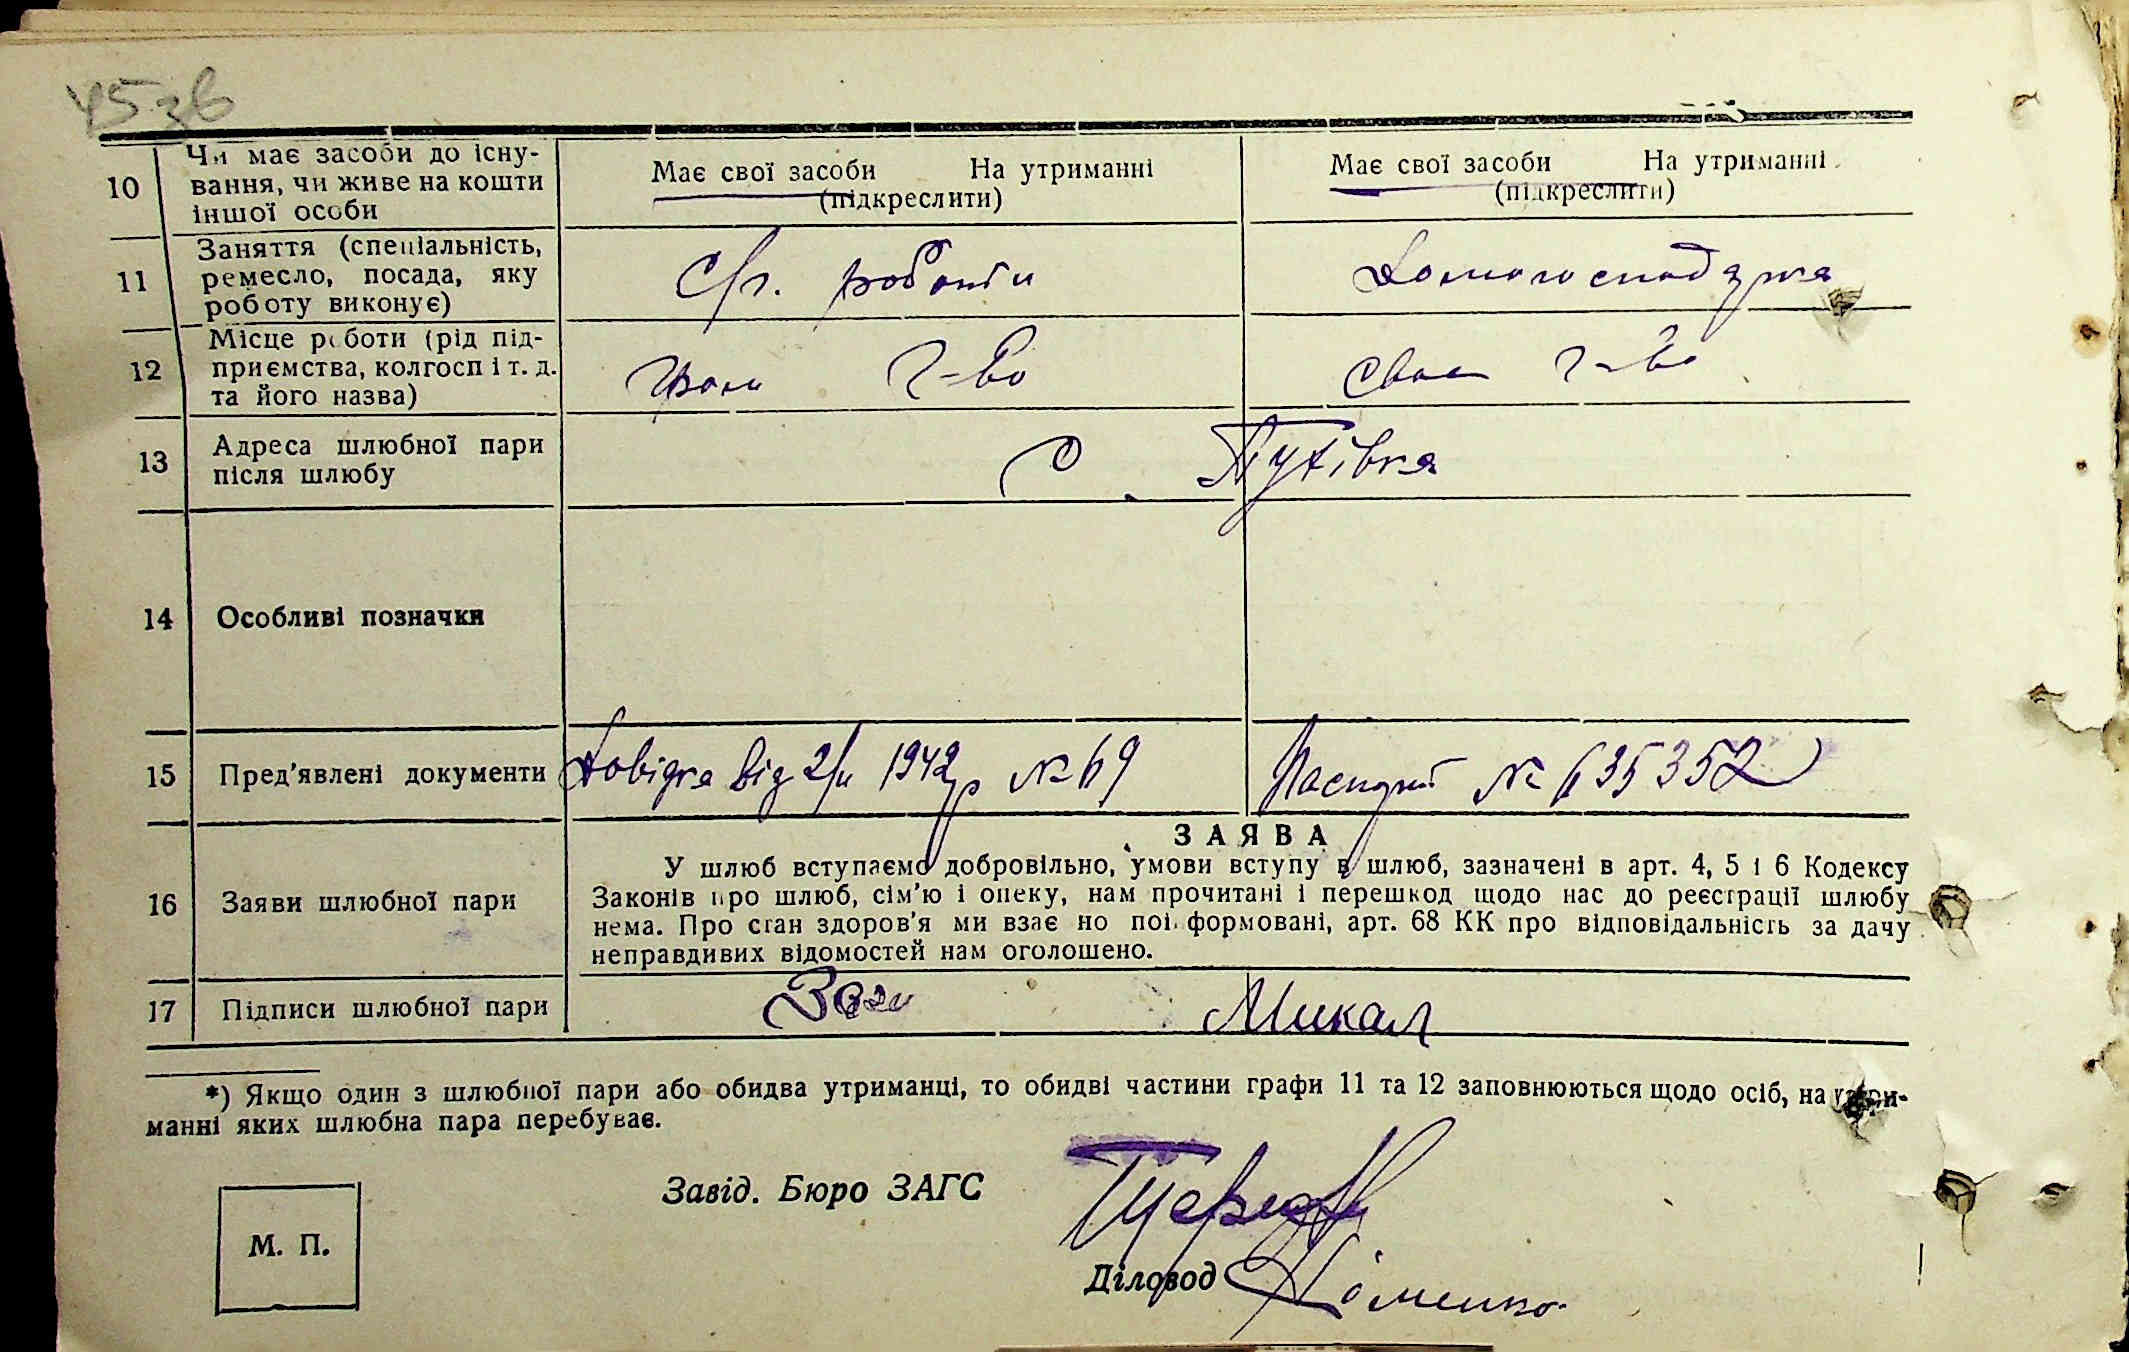 45 зв
10 Чи має засоби до існу-
вання, чи живе на кошти
іншої особи
Має свої засоби На утриманні
(підкреслити)
Має свої засоби На утриманні
(підкреслити)
11 Заняття (спеціальність,
ремесло, посада, яку
роботу виконує)
С/г. роботи
Домогосподарка
12 Місце роботи (рід під-
приємства, колгосп і т. д.
та його назва)
Гром г-во
Своє г-во
13 Адреса шлюбної пари
після шлюбу
С. Пухівка
14 Особливі позначки
15 Пред'явлені документи
Довідка від 2/II 1942 р № 69
Паспорт № 635352
16 Заяви шлюбної пари
ЗАЯВА
У шлюб вступаємо добровільно, умови вступу в шлюб, зазначені в арт. 4, 5 і 6 Кодексу
Законів про шлюб, сім'ю і опеку, нам прочитані і перешкод щодо нас до реєстрації шлюбу
нема. Про стан здоров'я ми взає но поінформовані, арт. 68 КК про відповідальність за дачу
неправдивих відомостей нам оголошено.
17 Підписи шлюбної пари
Микал
*) Якщо один з шлюбної пари або обидва утриманці, то обидві частини графи 11 та 12 заповнюються щодо осіб, на утри-
манні яких шлюбна пара перебуває.
Завід. Бюро ЗАГС
М. П.
Діловод